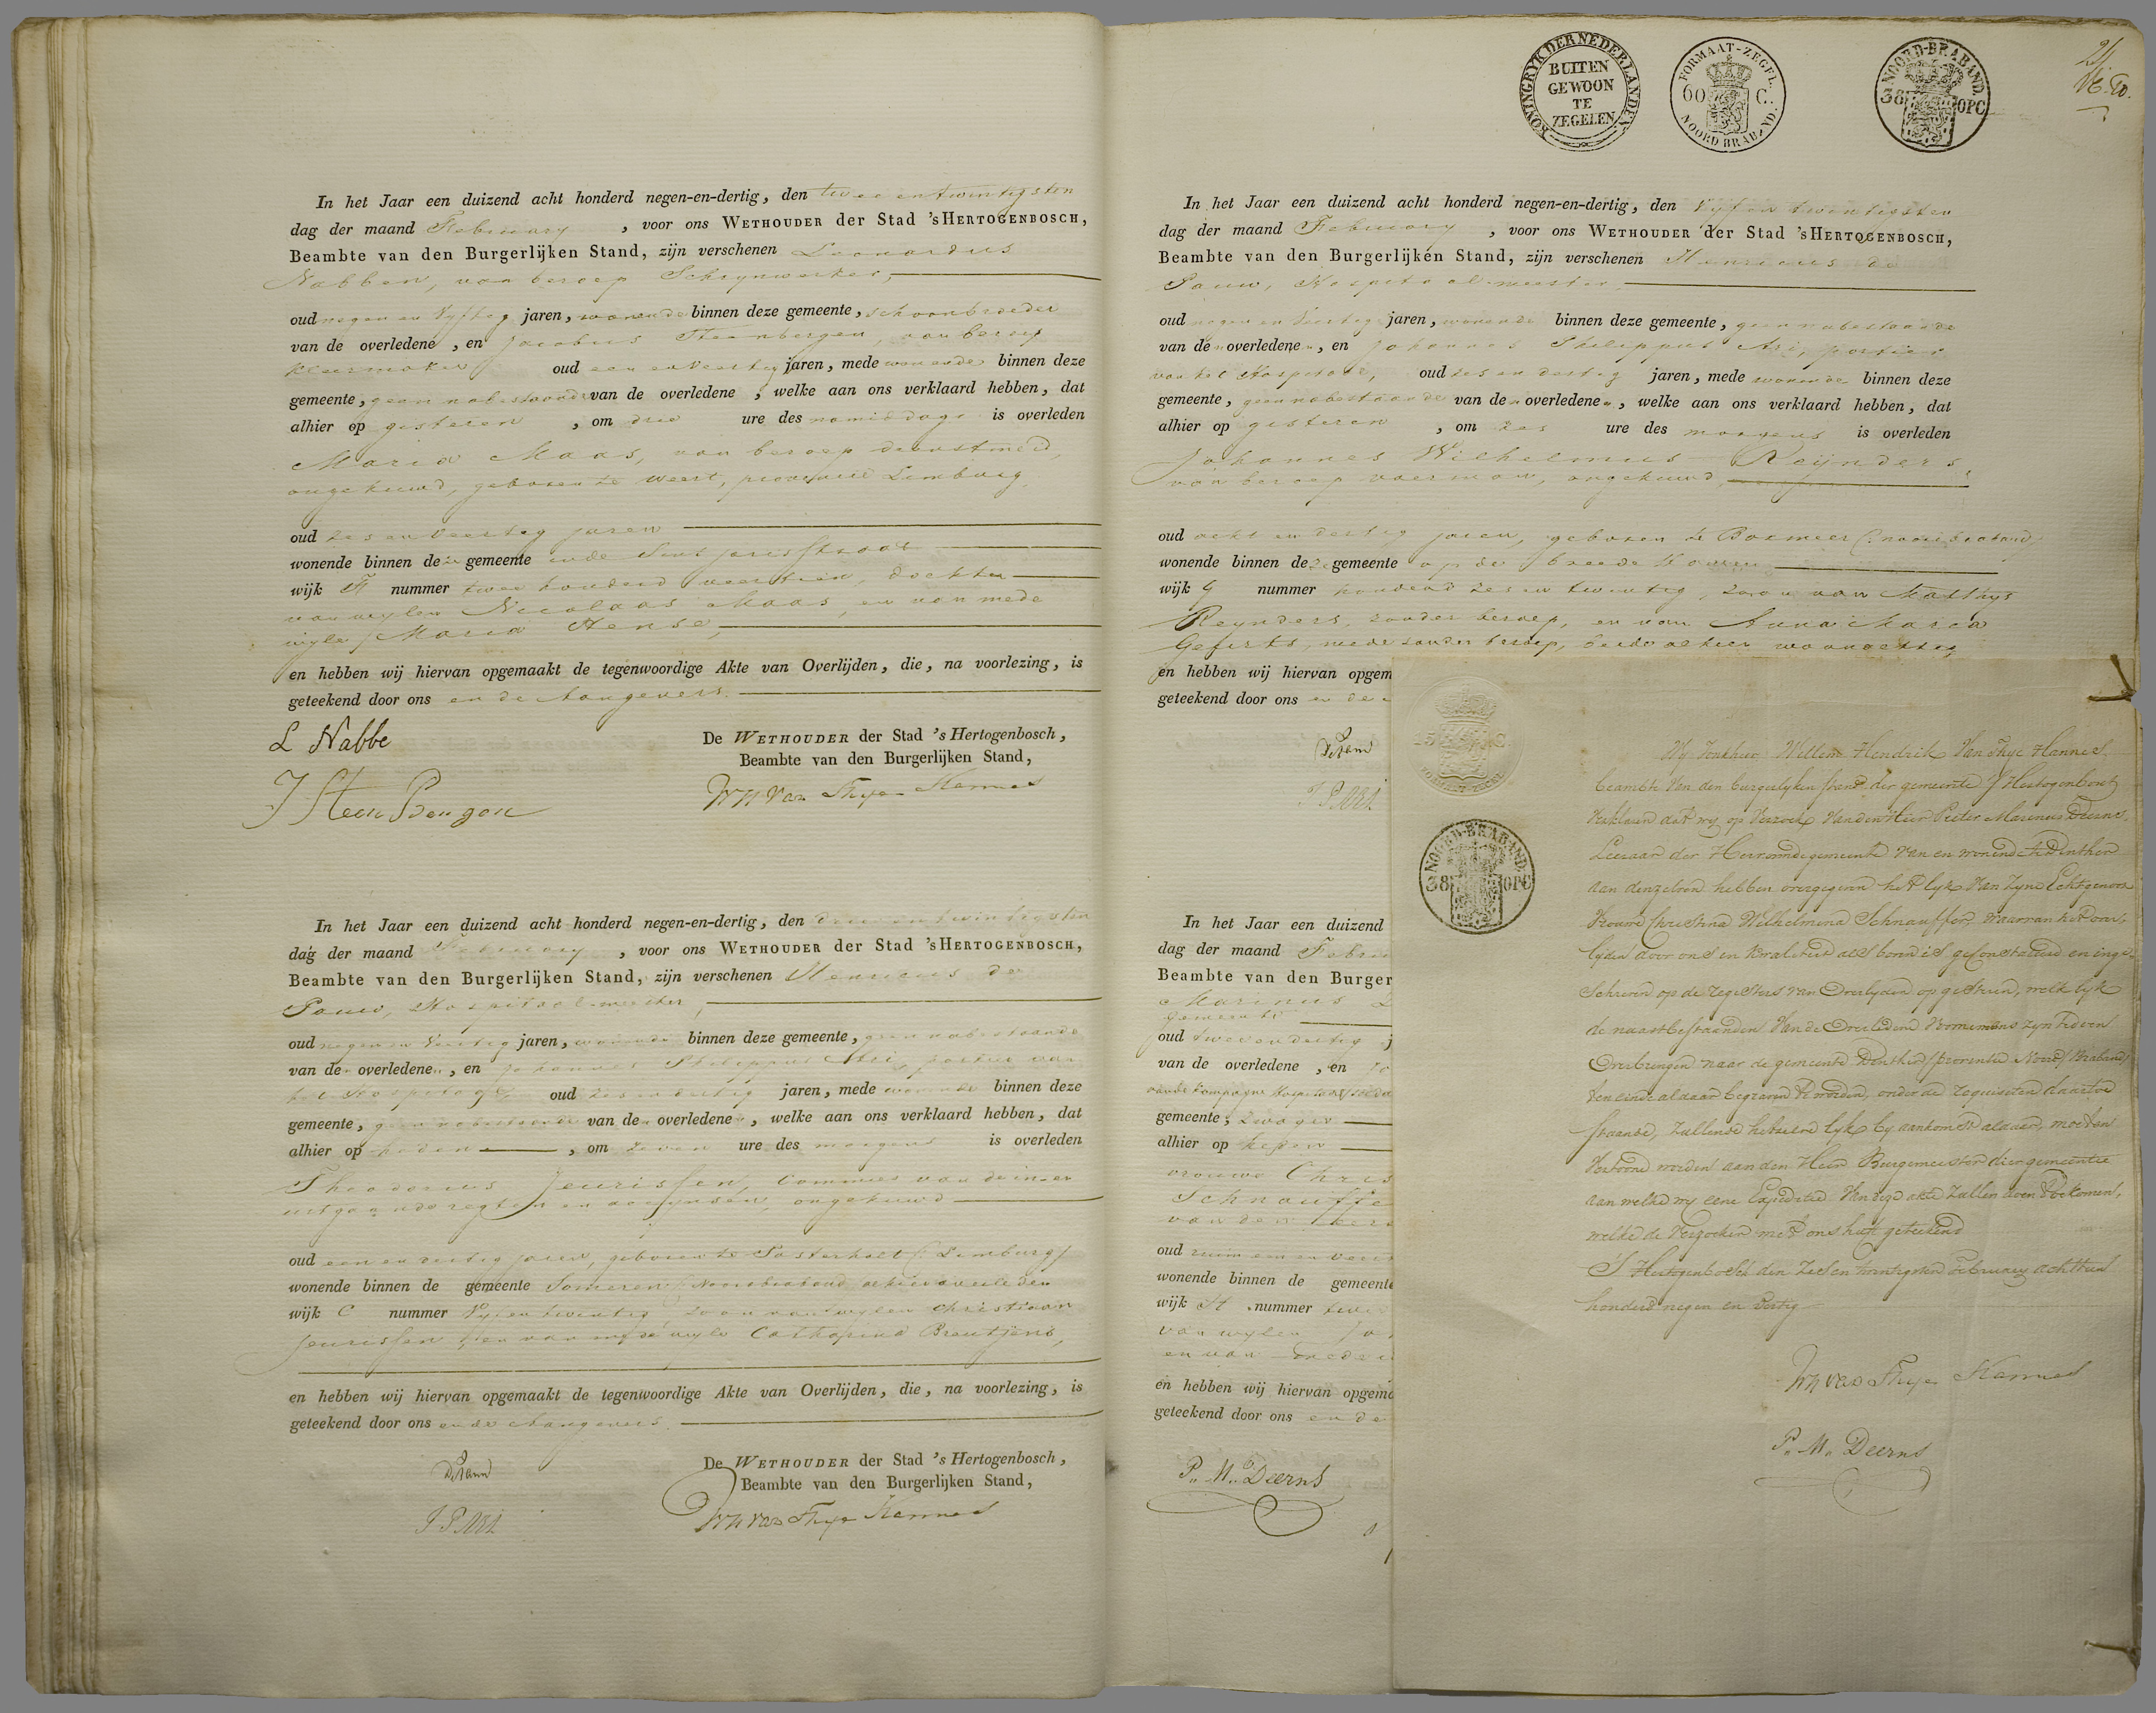 In het Jaar een duizend acht honderd negen-en-dertig, den twee en twintigsten
dag der maand February , voor ons WETHOUDER der Stad 'sHERTOGENBOSCH,
Beambte van den Burgerlijken Stand, zijn verschenen Leonardus
Nabben, van beroep Schrynwerker,
oud negen en Vyftig jaren, wonende binnen deze gemeente, schoonbroeder
van de overledene , en Jacobus Steenbergen, van beroep
kleermaker oud een en Veertig jaren, mede wonende binnen deze
gemeente, geen nabestaande van de overledene , welke aan ons verklaard hebben, dat
alhier op gisteren , om drie ure des namiddags is overleden
Maria Maas, van beroep dienstmeid,
ongehuwd, geboren te Weert, provincie Limburg,
oud zes en Veertig jaren
wonende binnen deze gemeente in de Sint Jorisstraat
wijk F nummer twee honderd veertien, dochter
van wylen Nicolaas Maas, en van mede
wyle Maria Hense,
en hebben wij hiervan opgemaakt de tegenwoordige Akte van Overlijden, die, na voorlezing, is
geteekend door ons en de Aangevers.
De WETHOUDER der Stad 's Hertogenbosch,
Beambte van den Burgerlijken Stand,
L Nabbe
J Steen Bergen
WH van Thye Hannes
In het Jaar een duizend acht honderd negen-en-dertig, den drie en twintigsten
dag der maand February , voor ons WETHOUDER der Stad 'sHERTOGENBOSCH,
Beambte van den Burgerlijken Stand, zijn verschenen Henricus de
Pauw, Hospitaal-meester,
oud negen en Veertig jaren, wonende binnen deze gemeente, geen nabestaande
van den overledenen, en Johannes Philippus Ari, portier van
het Hospitaal, oud zes en dertig jaren, mede wonende binnen deze
gemeente, geen nabestaande van den overledenen, welke aan ons verklaard hebben, dat
alhier op heden , om zeven ure des morgens is overleden
Theodorus Jeurissen, Commies van de in- en
uitgaande regten en accynsen, ongehuwd
oud een en dertig jaren, geboren te Posterholt (Limburg)
wonende binnen de gemeente Someren (Noordbraband) alhier overleden
wijk C nummer Vyf en twintig, zoon van wylen Christiaan
Jeurissen, en van mede wyle Catharina Breutjens,
en hebben wij hiervan opgemaakt de tegenwoordige Akte van Overlijden, die, na voorlezing, is
geteekend door ons en de Aangevers.
De WETHOUDER der Stad 's Hertogenbosch,
Beambte van den Burgerlijken Stand,
DePauw
J P Ari
WH van Thye Hannes
KONINGRYK DER NEDERLANDEN
BUITEN
GEWOON
TE
ZEGELEN
FORMAAT-ZEGEL
60 C.
NOORD BRABAND
NOORD-BRABAND
38 OPC
21
In het Jaar een duizend acht honderd negen-en-dertig, den Vyf en twintigsten
dag der maand February , voor ons WETHOUDER der Stad 'sHERTOGENBOSCH,
Beambte van den Burgerlijken Stand, zijn verschenen Henricus de
Pauw, Hospitaal-meester,
oud negen en Veertig jaren, wonende binnen deze gemeente, geen nabestaande
van den overledenen, en Johannes Philippus Ari, portier
van het Hospitaal, oud zes en dertig jaren, mede wonende binnen deze
gemeente, geen nabestaande van den overledenen, welke aan ons verklaard hebben, dat
alhier op gisteren , om zes ure des morgens is overleden
Johannes Wilhelmus Reijnders,
van beroep voerman, ongehuwd,
oud acht en dertig jaren, geboren te Boxmeer (Noordbraband)
wonende binnen deze gemeente op de breede Haven
wijk G nummer honderd zes en twintig, zoon van Matthys
Reynders, zonder beroep, en van Anna Maria
Gefirts, mede zonder beroep, beide alhier woonachtig
en hebben wij hiervan opgem
geteekend door ons en de
DePauw
J P Ari
In het Jaar een duizend
dag der maand Febru
Beambte van den Burger
Marinus
gemeente
oud twee en dertig j
van de overledene , en
gemeente, zwager
alhier op heden
vrouwe Chris
Schnauffe
van den
oud ruim een en veer
wonende binnen de gemeente
wijk H nummer twee
van wylen Jo
en van mede
en hebben wij hiervan opgema
geteekend door ons en de
P. M. Deerns
NOORD-BRABAND
38 OPC
Wy Jonkheer Willem Hendrik Van Thye Hannes,
beambte Van den burgerlyken stand der gemeente S'Hertogenbosch
Verklaren dat wy op Verzoek Van den Heer Pieter Marinus Deerns,
Leeraar der Hervormde gemeente Van en wonende te Dinther
aan denzelven hebben overgegeven het lyk Van Zyne Echtgenoote
Vrouwe Christina Wilhelmina Schnauffer, waarvan het over-
lyden door ons in Kwaliteit als boven is geconstateerd en inge-
schreven op de registers van Overlyden op gisteren, welk lyk
de naastbestaanden Van de Overledene Voornemens zyn te doen
Overbrengen naar de gemeente Dinther (provincie Noord Braband)
ten einde aldaar begraven te worden, onder de requisiten daartoe
staande, zullende hetzelve lyk by aankomst aldaar, moeten
Vertoond worden aan den Heer Burgemeester dier gemeente
aan welke wy eene Expeditie Van deze akte zullen doen toekomen,
welke de Verzoeker met ons heeft geteekend
S'Hertogenbosch den Zes en twintigsten February achttien
honderd negen en dertig
WH van Thye Hannes
P. M. Deerns